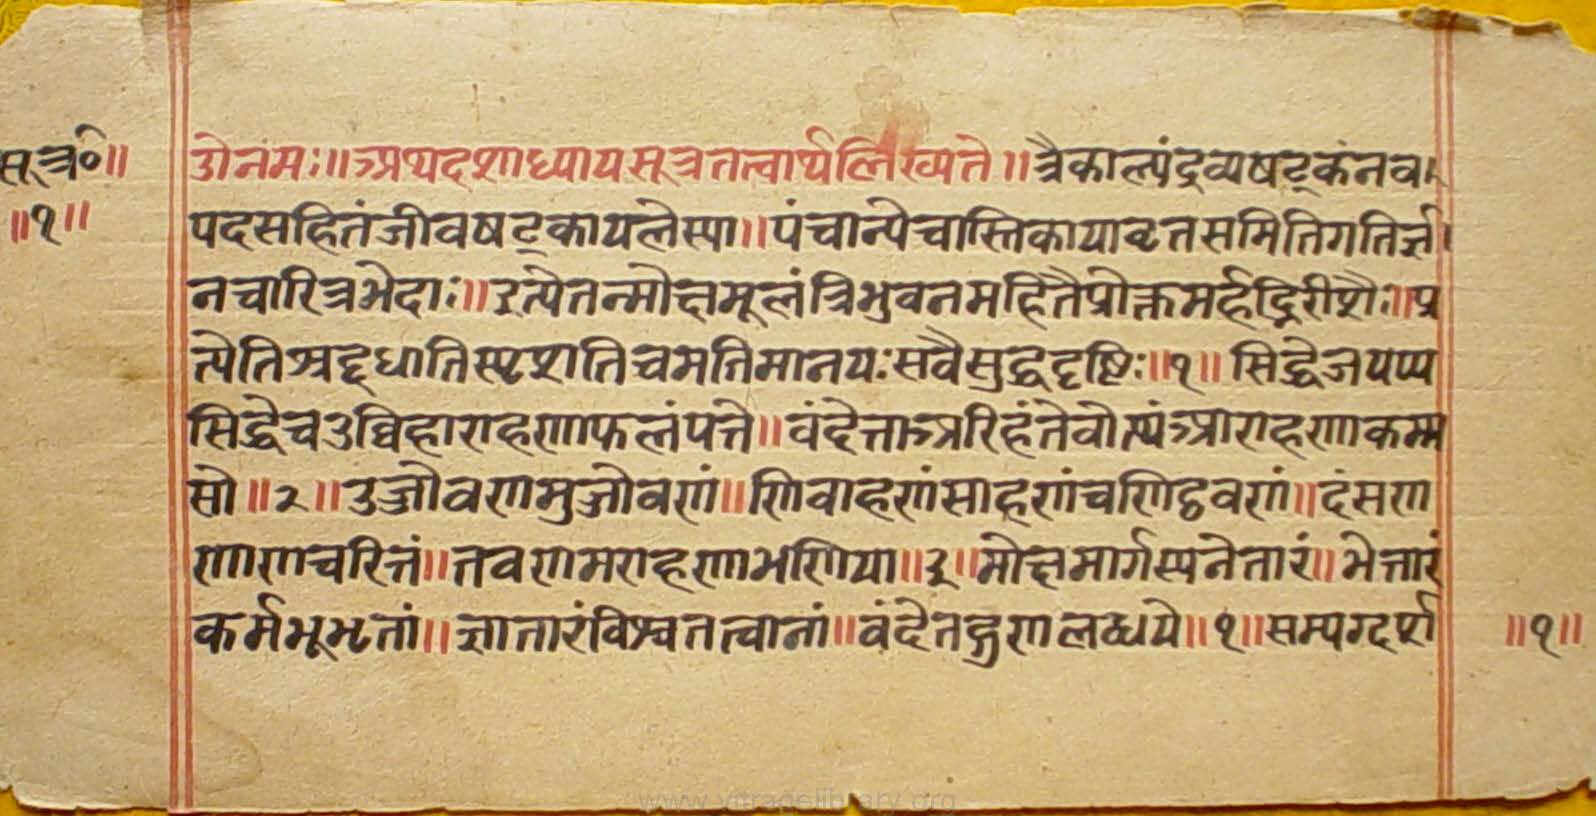 सूत्र०॥
॥१॥
उोनमः॥अथदशाध्यायसूत्रतत्वार्थलिख्यते॥त्रैकाल्यंद्रव्यषट्कंनव।
पदसहितंजीवषट्कायलेस्या॥पंचान्येचास्तिकायाव्रतसमितिगतिर्ज्ञा
नचारित्रभेदाः॥इत्येतन्मोक्षमूलंत्रिभुवनमहितैप्रोक्तमर्हद्भिरीशैः॥प्र
त्येतिश्रद्दधातिस्पृशतिचमतिमानयःसवैसुद्धदृष्टिः॥१॥सिद्धेजयप्प
सिद्धेचउव्विहाराहणाफलंपत्ते॥वंदेत्ताअरिहंतेवोत्थंआराहणाकम्म
सो॥२॥उज्जोवणमुज्जोवणं॥णिवाहणंसाहणंचणिट्ठवणं॥दंसण
णाणचरित्तं॥तवणामराहणाभणिया॥३॥मोक्षमार्गस्यनेतारं॥भेत्तारं
कर्मभूभृतां॥ज्ञातारंविश्वतत्वानां॥वंदेतद्गुणलब्धये॥१॥सम्यग्दर्श
॥१॥
www.vitragelibrary.org